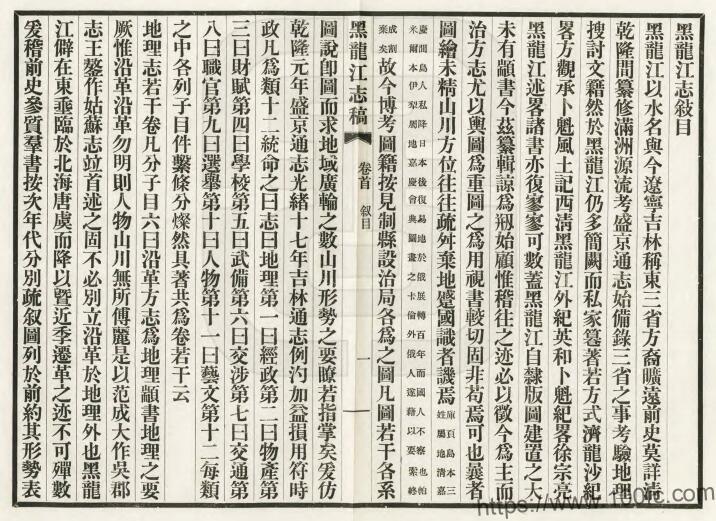 黑龍江志敍目
黑龍江以水名與今遼寧吉林稱東三省方裔曠遠前史莫詳淸
乾隆間纂修滿洲源流考盛京通志始備錄三省之事考驗地理
搜討文籍然於黑龍江仍多簡闕而私家篹著若方式濟龍沙紀
畧方觀承卜魁風土記西淸黑龍江外紀英和卜魁紀畧徐宗亮
黑龍江述畧諸書亦復寥寥可數蓋黑龍江自隸版圖建置之大
未有顓書今茲纂輯諒爲刱始顧惟稽往之迹必以徵今爲主而
治方志尤以輿圖爲重圖之爲用視書較切固非苟焉可也曩者
圖繪未精山川方位往往疏舛棄地蹙國識者譏焉庫頁島本三姓屬地清嘉
慶間島人私降日本後復易地於俄展轉百年而國人不察也帕
米爾本伊犁屬地嘉慶會典圖畫之卡倫外俄人遂藉以要索終
成割棄矣故今博考圖籍按見制縣設治局各爲之圖凡圖若干各系
黑龍江志稿 卷首 敍目 一
圖說卽圖而求地域廣輪之數山川形勢之要瞭若指掌矣爰仿
乾隆元年盛京通志光緖十七年吉林通志例汋加益損用符時
政凡爲類十二統命之曰志曰地理第一曰經政第二曰物產第
三曰財賦第四曰學校第五曰武備第六曰交涉第七曰交通第
八曰職官第九曰選舉第十曰人物第十一曰藝文第十二每類
之中各列子目件繫條分燦然具著共爲卷若干云
地理志若干卷凡分子目六曰沿革方志爲地理顓書地理之要
厥惟沿革沿革勿明則人物山川無所傅麗是以范成大作吳郡
志王鏊作姑蘇志竝首述之固不必別立沿革於地理外也黑龍
江僻在東埀臨於北海唐虞而降以曁近季遷革之迹不可殫數
爰稽前史參質羣書按次年代分別疏敍圖列於前約其形勢表
https://www.100fc.com